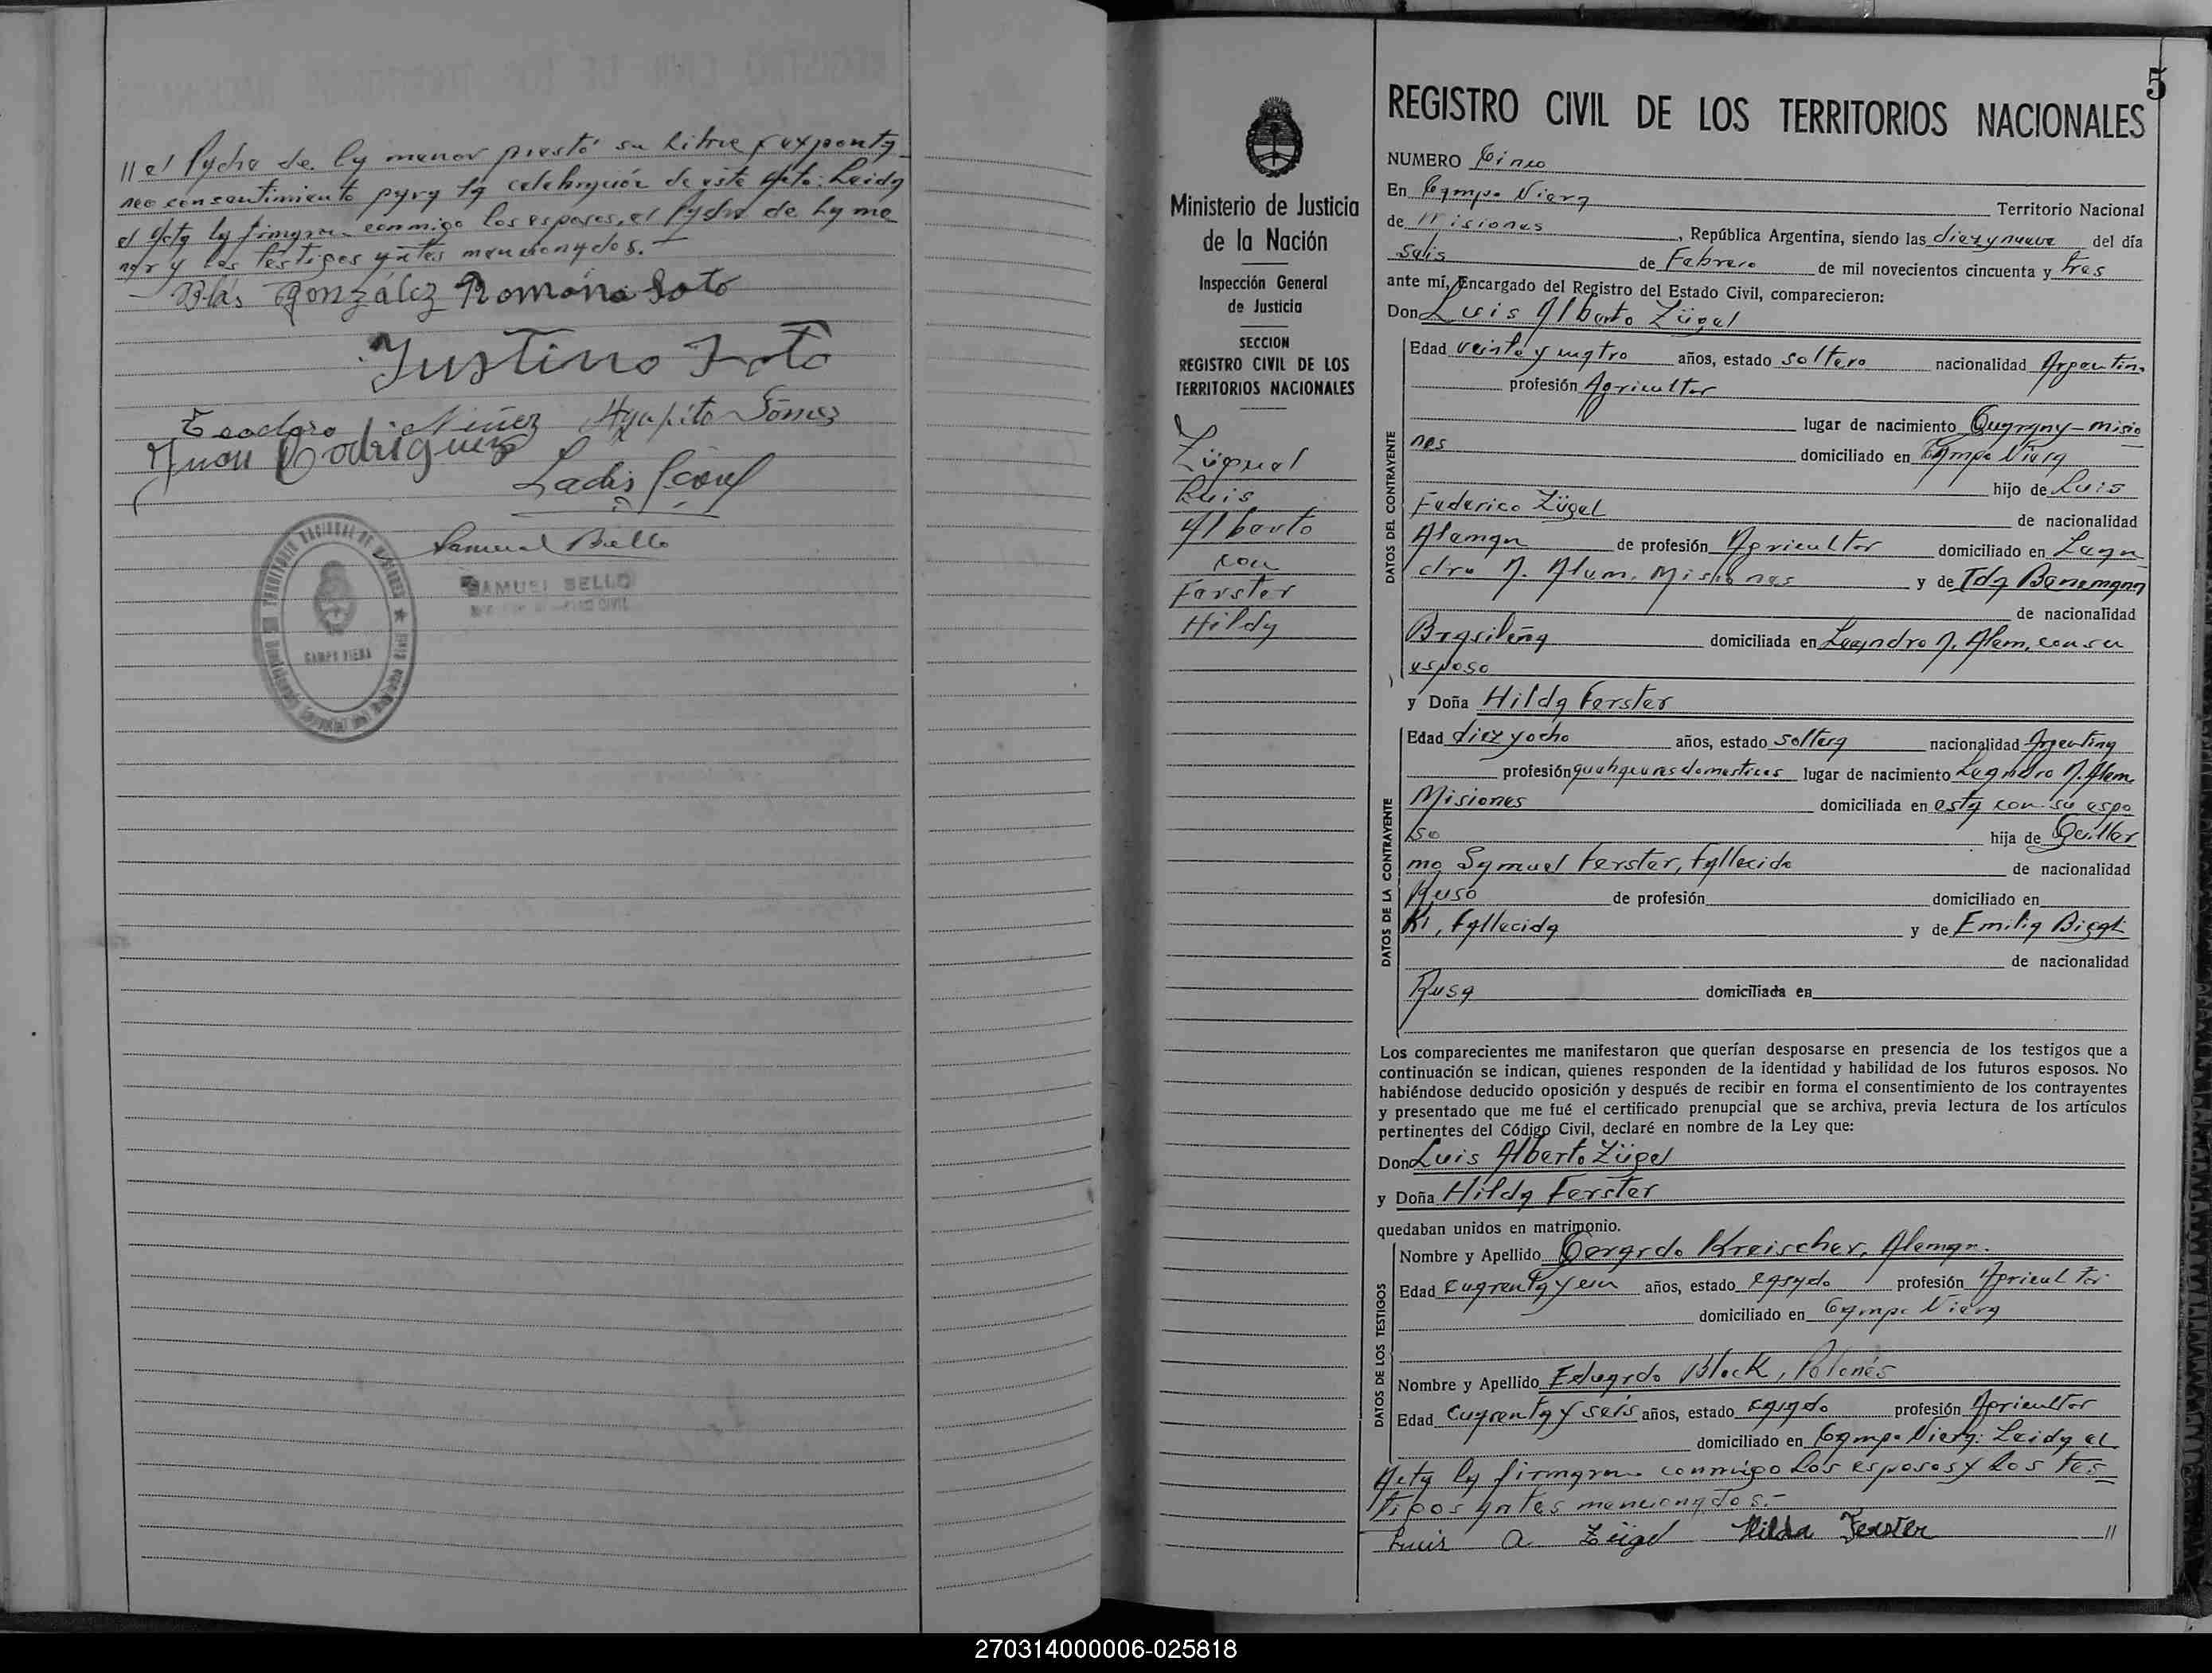 // el Padre de la menor prestó su libre y exponta
neo consentimiento para la celebración de este Acto: Leida
el Acta la firmaron conmigo los esposos, el Padre de la me
nor y los testigos antes mencionados.—
Blás González Romona Soto
Justino Soto
Teodoro Núñez Agapito Gómez
Juan Rodriguez
Samuel Bello
SAMUEL BELLO
CAMPO VIERA
5
REGISTRO CIVIL DE LOS TERRITORIOS NACIONALES
Ministerio de Justicia
de la Nación
Inspección General
de Justicia
SECCION
REGISTRO CIVIL DE LOS
TERRITORIOS NACIONALES
Züguel
Luis
Alberto
con
Ferster
Hilda
NUMERO Cinco
En Campo Viera Territorio Nacional
de Misiones, República Argentina, siendo las diez y nueve del día
seis de Febrero de mil novecientos cincuenta y tres
ante mí, Encargado del Registro del Estado Civil, comparecieron:
Don Luis Alberto Zügel
DATOS DEL CONTRAYENTE
Edad veinte y cuatro años, estado soltero nacionalidad Argentina
profesión Agricultor
lugar de nacimiento Guarany - Misio
nes domiciliado en Campo Viera
hijo de Luis
Federico Zügel de nacionalidad
Aleman de profesión Agricultor domiciliado en Lean
dro N. Alem, Misiones y de Ida Banemann
de nacionalidad
Brasileña domiciliada en Leandro N. Alem, con su
esposo
y Doña Hilda Ferster
DATOS DE LA CONTRAYENTE
Edad diez y ocho años, estado soltera nacionalidad Argentina
profesión quehaceres domesticos lugar de nacimiento Leandro N. Alem
Misiones domiciliada en esta con su espo
so hija de Guiller
mo Samuel Ferster, fallecido de nacionalidad
Ruso de profesión domiciliado en
fallecida y de Emilia
de nacionalidad
Rusa domiciliada en
Los comparecientes me manifestaron que querían desposarse en presencia de los testigos que a
continuación se indican, quienes responden de la identidad y habilidad de los futuros esposos. No
habiéndose deducido oposición y después de recibir en forma el consentimiento de los contrayentes
y presentado que me fué el certificado prenupcial que se archiva, previa lectura de los artículos
pertinentes del Código Civil, declaré en nombre de la Ley que:
Don Luis Alberto Zügel
y Doña Hilda Ferster
quedaban unidos en matrimonio.
DATOS DE LOS TESTIGOS
Nombre y Apellido Gerardo Kreischer, Aleman.
Edad cuarenta y un años, estado casado profesión Agricultor
domiciliado en Campo Viera
Nombre y Apellido Eduardo Block, Polonés
Edad cuarenta y seis años, estado casado profesión Agricultor
domiciliado en Campo Viera: Leida el
Acta la firmaron conmigo los esposos y los tes
tigos antes mencionados.-
Luis A. Zügel Hilda Ferster //
270314000006-025818